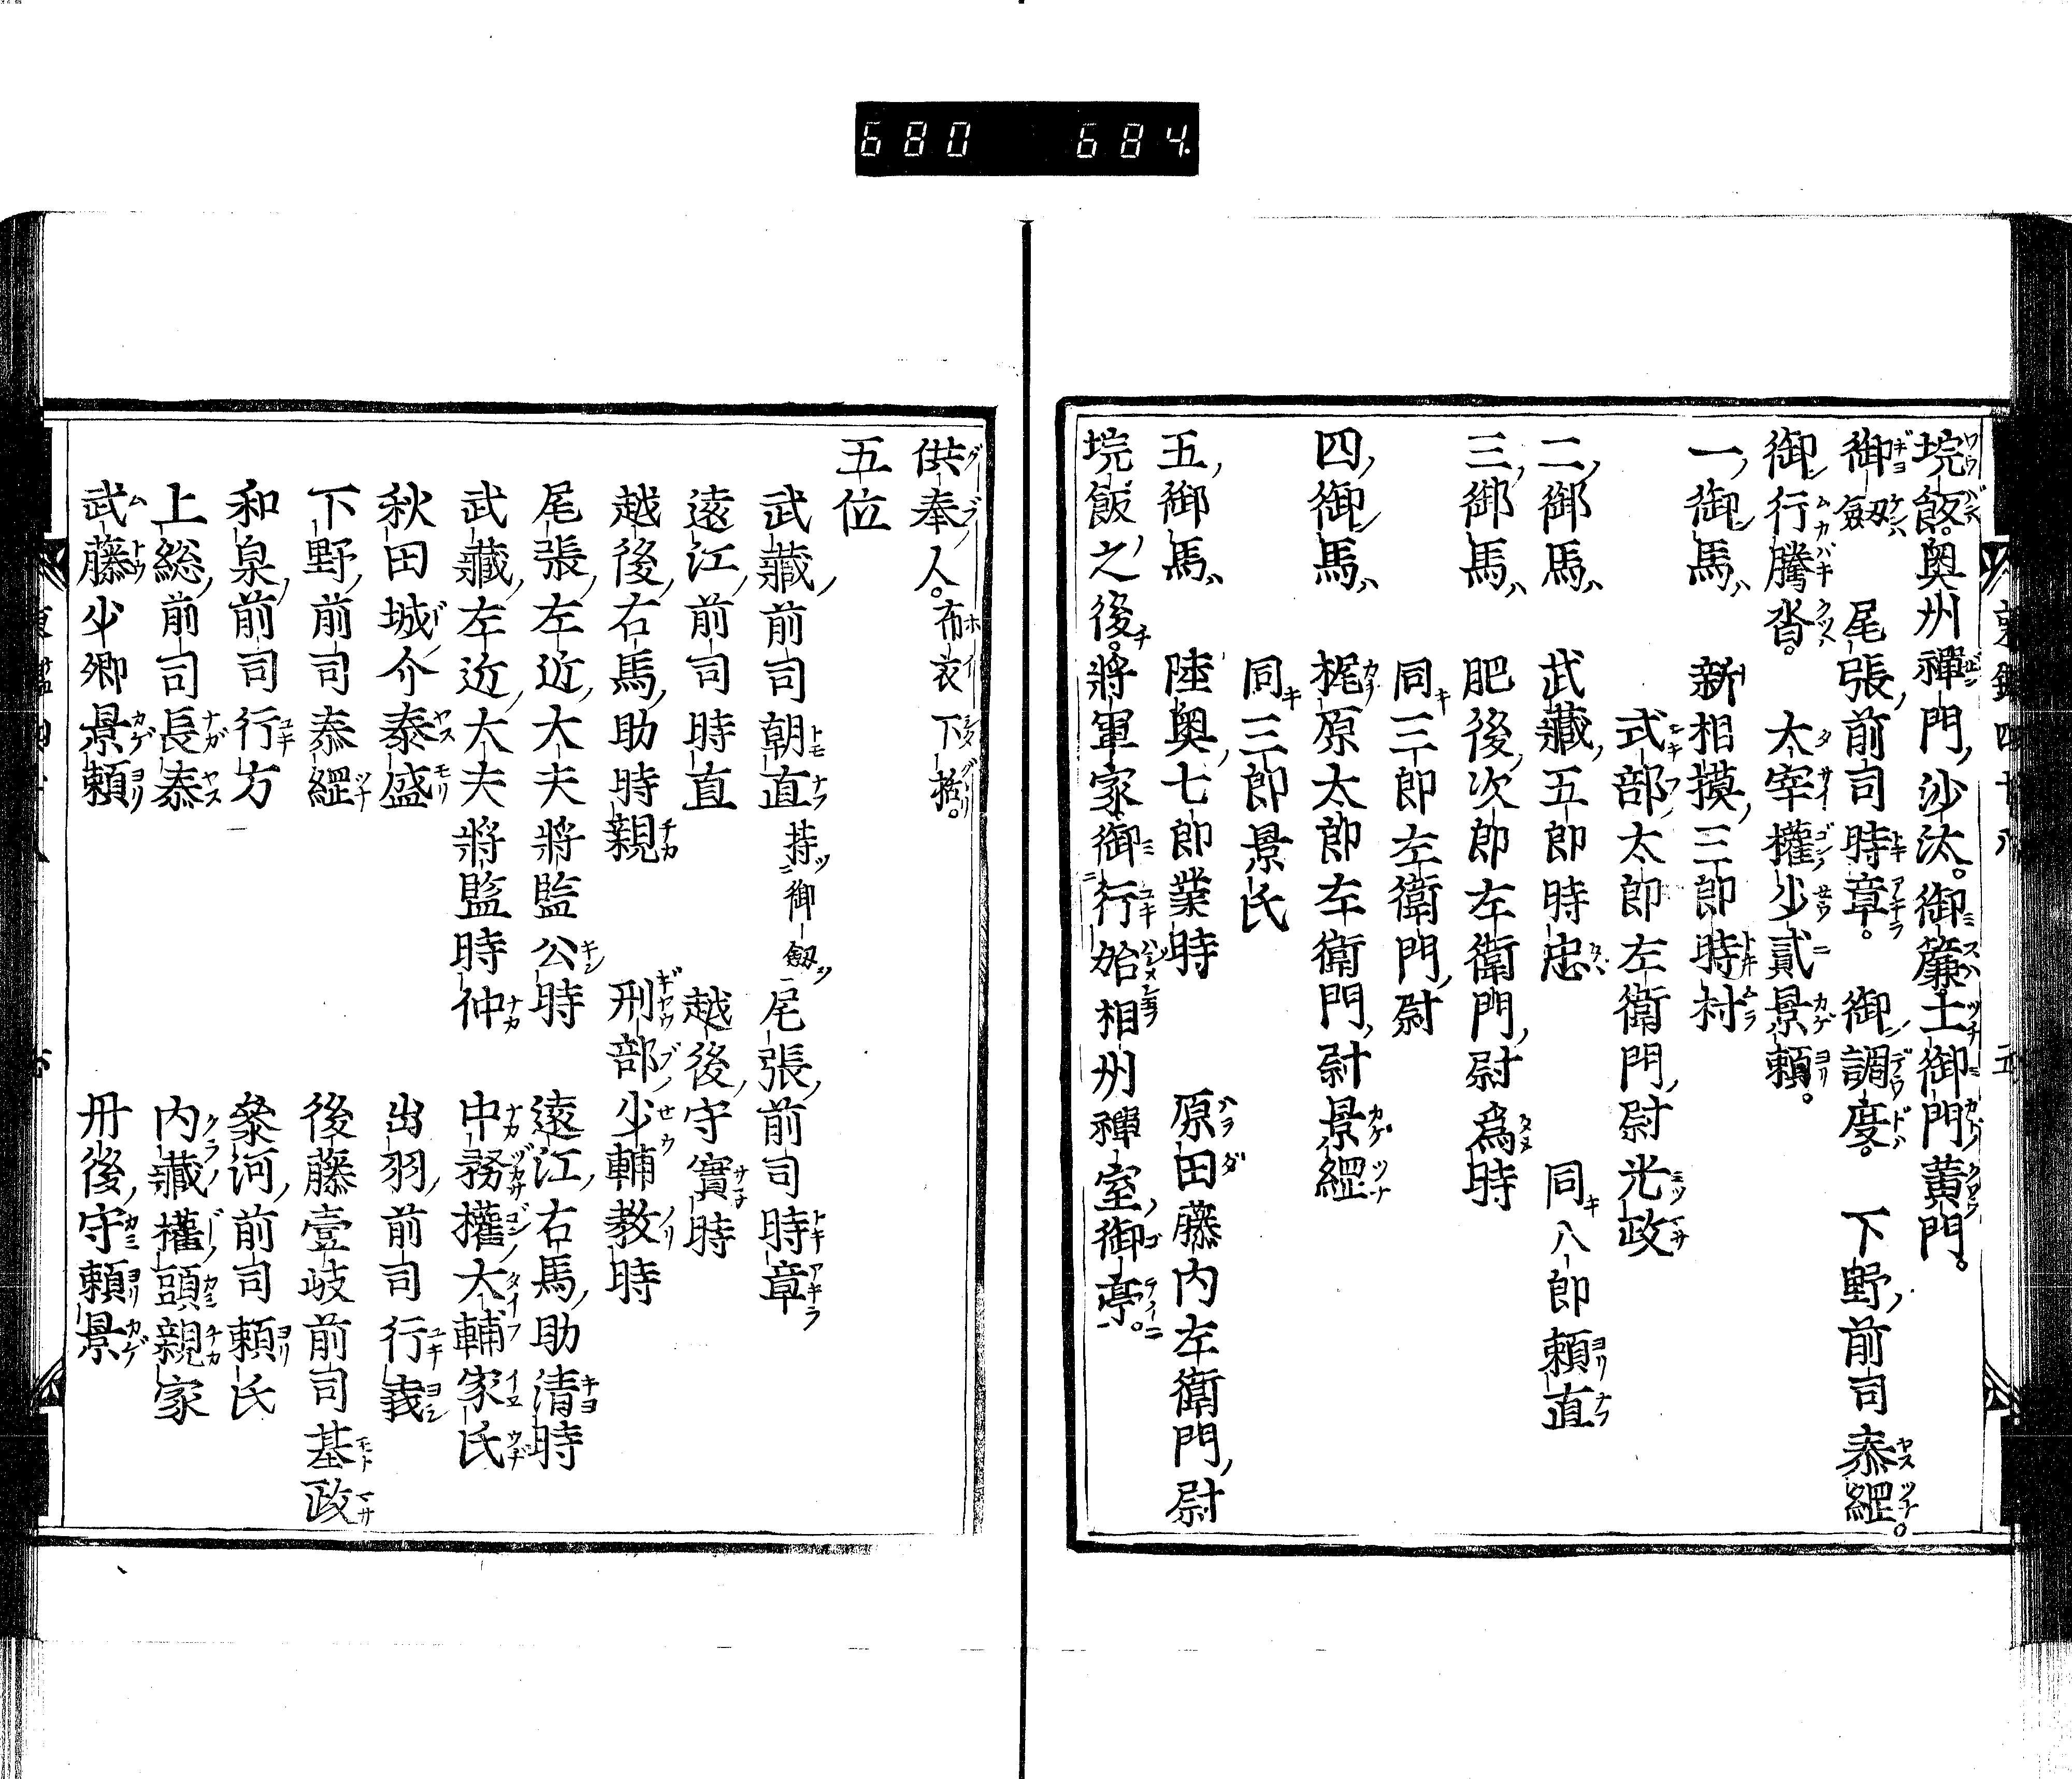 680 684
垸飯。奥州禪門沙汰。御簾。土御門黄門。
御剱 尾張前司時章。 御調度。 下野前司泰經。
御行騰沓。 太宰權少貳景頼。
一御馬 新相摸三郎時村
式部太郎左衛門尉光政
二御馬 武藏五郎時忠 同八郎頼直
三御馬 肥後次郎左衛門尉爲時
同三郎左衛門尉
四御馬 梶原太郎左衛門尉景經
同三郎景氏
五御馬 陸奥七郎業時 原田藤内左衛門尉
垸飯之後。將軍家御行始相州禪室御亭。
供奉人。布衣下括。
五位
武藏前司朝直持御剱 尾張前司時章
遠江前司時直 越後守實時
越後右馬助時親 刑部少輔教時
尾張左近大夫將監公時 遠江右馬助清時
武藏左近大夫將監時仲 中務權大輔家氏
秋田城介泰盛 出羽前司行義
下野前司泰經 後藤壹岐前司基政
和泉前司行方 參河前司頼氏
上総前司長泰 内藏權頭親家
武藤少卿景頼 丹後守頼景